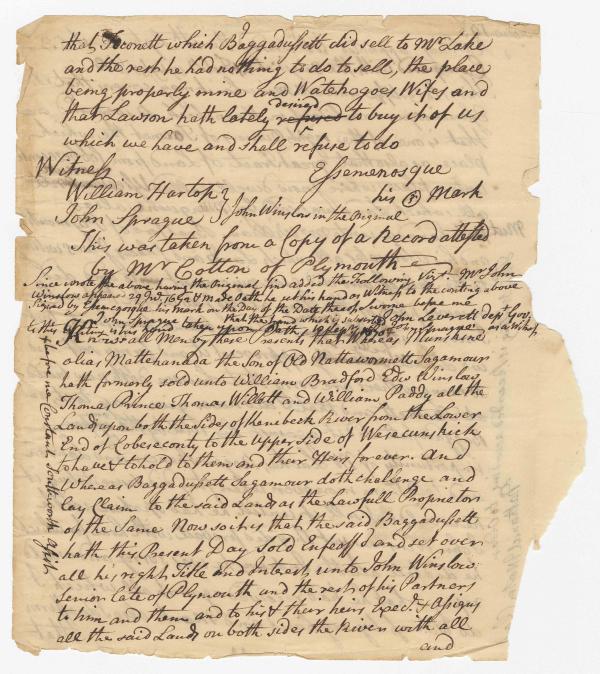 that Toconett which Baggadussett did sell to Mr Lake
and the rest he had nothing to do to sell, the place
being properly mine and Watchogoes Wifes and
that Lawson hath lately refused desired to buy it of us
which we have and shall refuse to do
Witness Essemenosque
William Hartop his Mark
John Sprague } John Winslow in the Original
This was taken from a Copy of a Record attested
by Mr Cotton of Plymouth
Since wrote the above having the Original find added the Following Vizt Mr John
Winslow appears 29 made Oath he set his hand as Witness to the writing above
Signed by Essemenosque his mark on the Day of the Date thereof sworne before me
John Leverett dept Gov
John Sprague taken upon Oath that he set his hand as a Witness
to this Writing
Know all Men by these Presents that Whereas Munshine
alias Mattehanada the Son of Old Nattawormett Sagamour
hath formerly sold unto William Bradford Edw Winslow
Thomas Prince Thomas Willett and William Paddy all the
Land upon both the Sides of Kenebeck River from the Lower
End of Cobeseconty to the Upper Side of Wesecunskick
to have & to hold to them and their Heirs forever. And
Whereas Baggadussett Sagamour doth challenge and
lay Claim to the said Land as the Lawfull Proprietor
of the Same Now so it is that the said Baggadussett
hath this Present Day Sold Enfeoff'd and set over
all his right Title and Interest unto John Winslow
Senior late of Plymouth and the rest of his Partners
to him and them and to his & their heirs Exect. & Assigns
all the said Land on both sides the River with all
and
before me Constant Southworth Assist